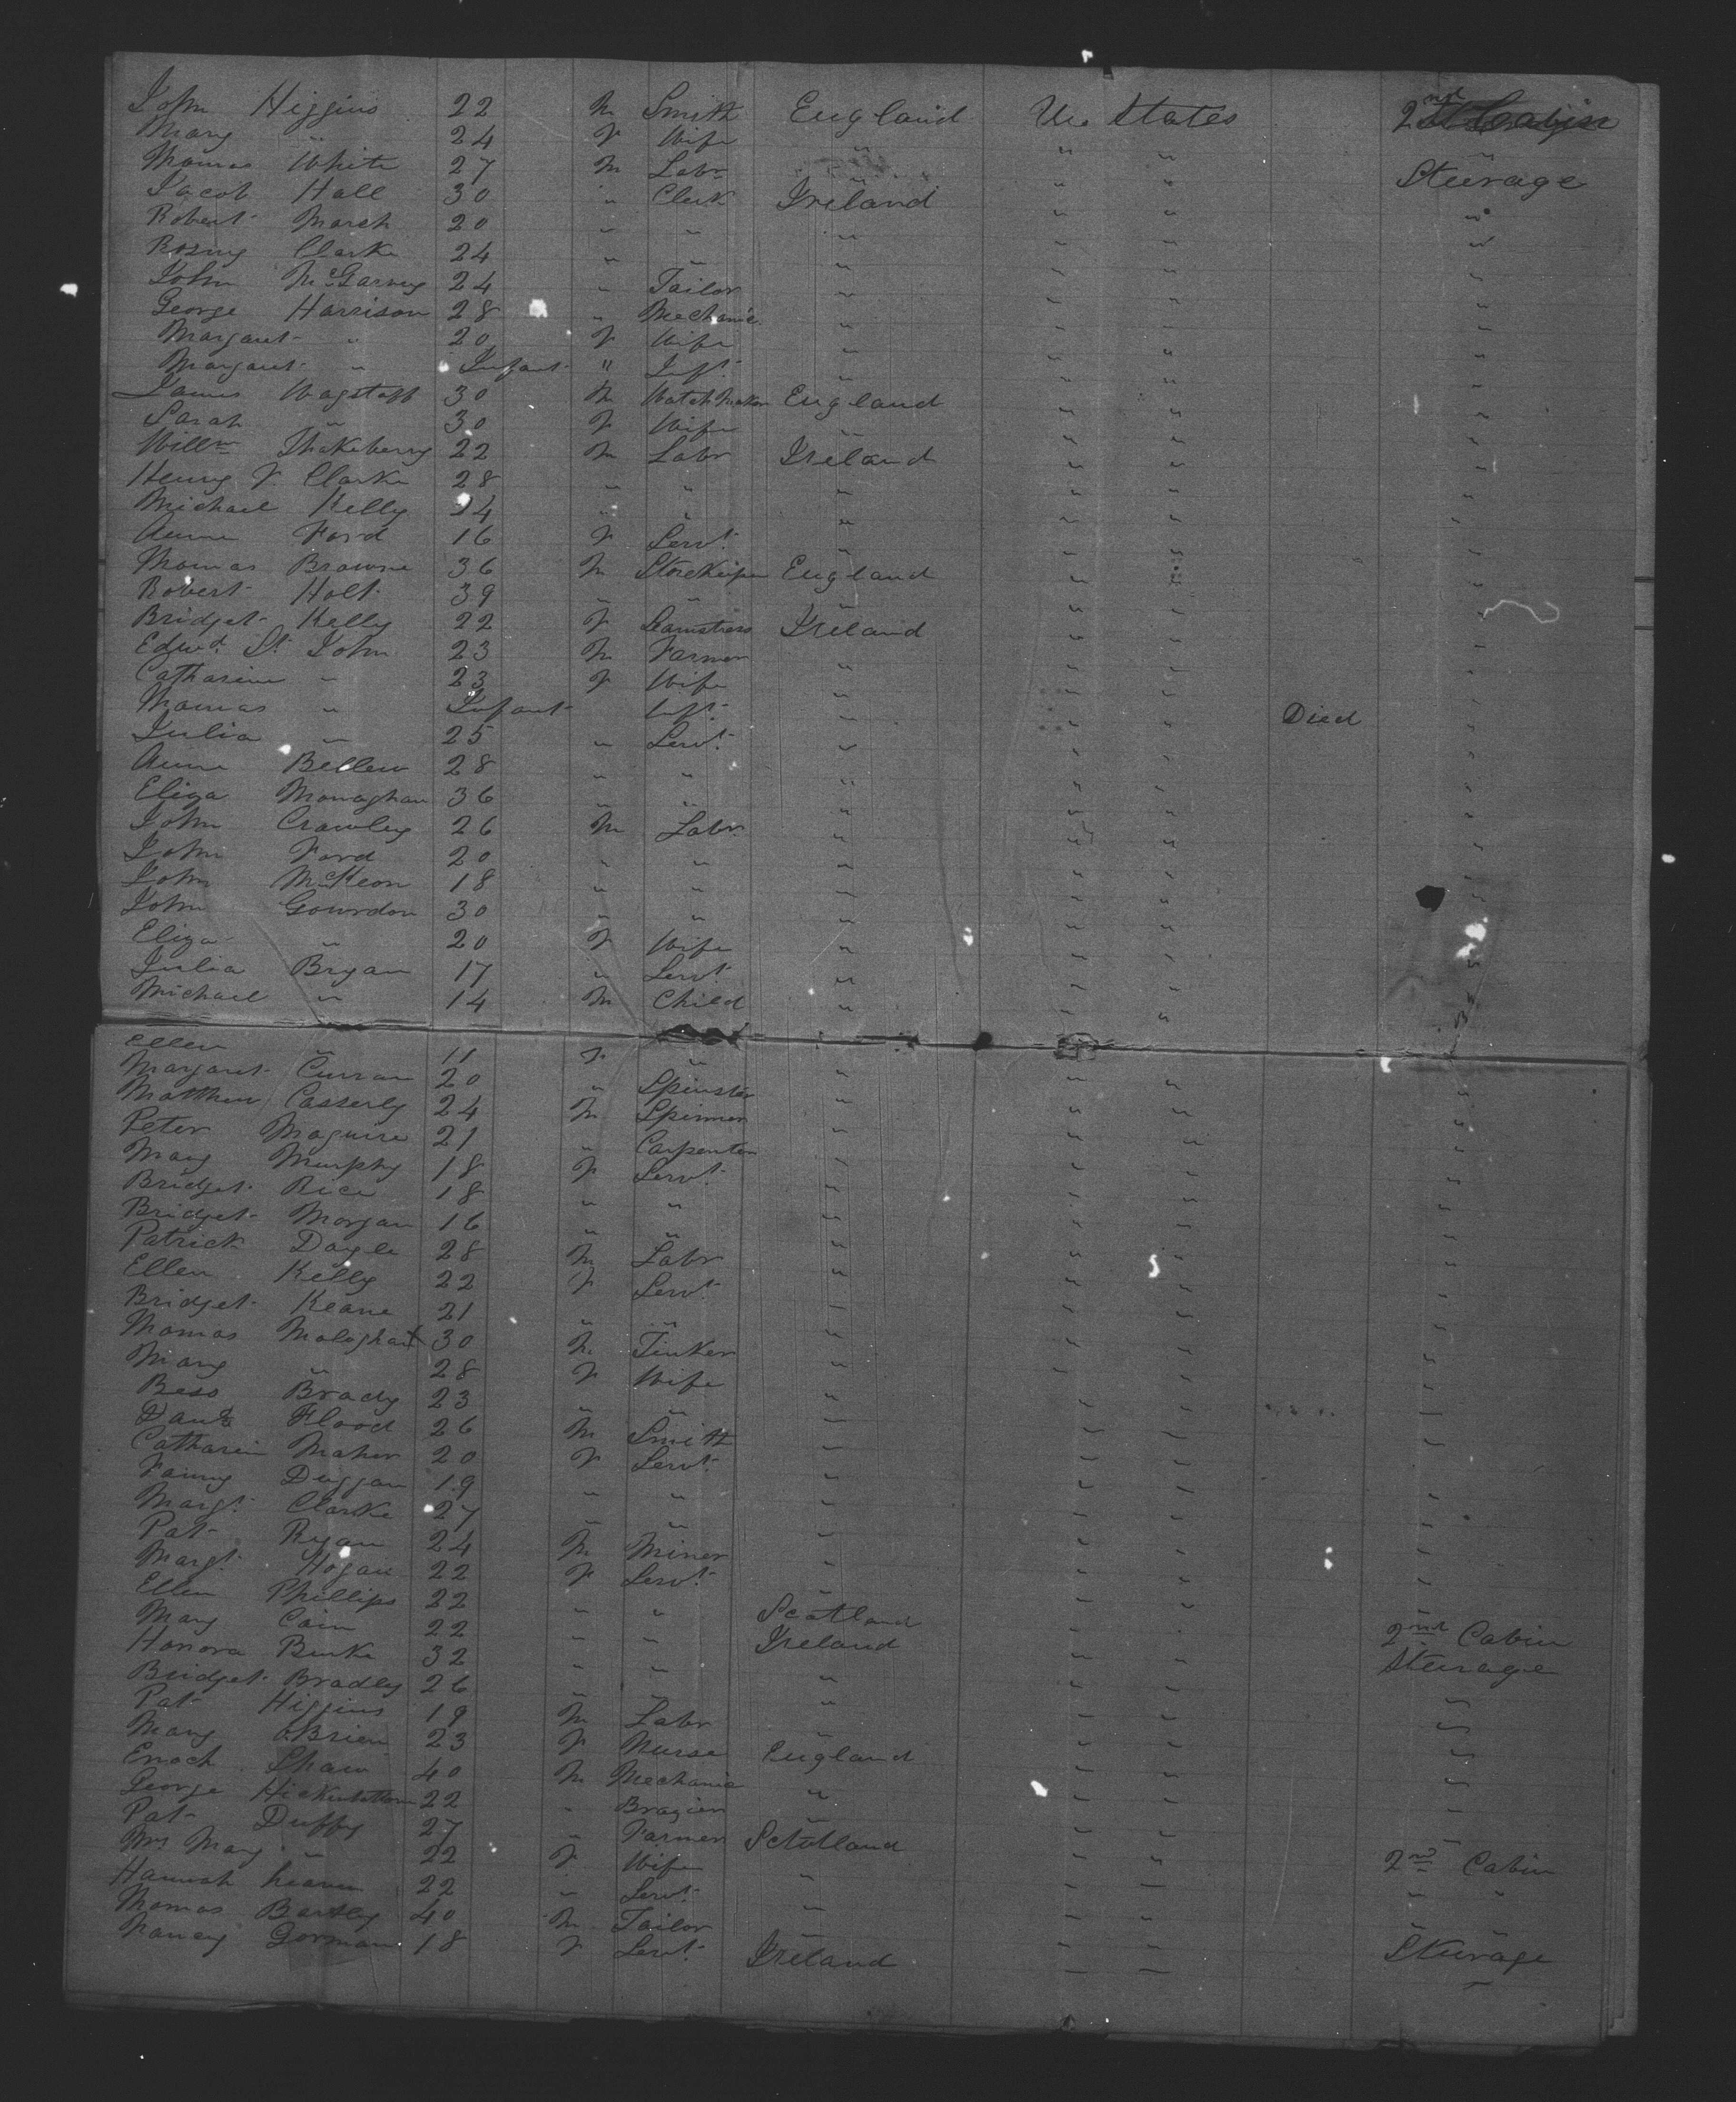 John Higgins 22 M Smith England Un States 2nd Cabin
Mary " 24 F Wife " " " "
Thomas White 27 M Labr " " " Steerage
Jacob Hall 30 " Clerk Ireland " " "
Robert March 20 " " " " " "
Rosiny Clarke 24 " " " " " "
John McGarvey 24 " Tailor " " " "
George Harrison 28 " Mechanic " " " "
Margaret " 20 F Wife " " " "
Margaret " Infant " Inft " " " "
James Wagstaff 30 M Watch Maker England " " "
Sarah " 30 F Wife " " " "
Willm Thakeberry 22 M Labr Ireland " " "
Henry F. Clarke 28 " " " " " "
Michael Kelly 24 " " " " " "
Anne Ford 16 F Servt " " " "
Thomas Browne 36 M StoreKeeper England " " "
Robert Holt 39 " " " " " "
Bridget Kelly 22 F Seamstress Ireland " " "
Edwd St John 23 M Farmer " " " "
Catharine " 23 F Wife " " " "
Thomas " Infant Inft " " " Died "
Julia " 25 " Servt " " " "
Anne Bellew 28 " " " " " "
Eliza Monaghan 36 " " " " " "
John Crawley 26 M Labr " " " "
John Ford 20 " " " " " "
John McKeon 18 " " " " " "
John Gourdon 30 " " " " " "
Eliza " 20 F Wife " " " "
Julia Bryan 17 " Servt " " " "
Michael " 14 M Child " " " "
Ellen " 11 F " " " " "
Margaret Curran 20 " Spinster " " " "
Matthew Casserly 24 M Spinner " " " "
Peter Maguire 21 " Carpenter " " " "
Mary Murphy 18 F Servt " " " "
Bridget Rice 18 " " " " " "
Bridget Morgan 16 " " " " " "
Patrick Doyle 28 M Labr " " " "
Ellen Kelly 22 F Servt " " " "
Bridget Keane 21 " " " " " "
Thomas Mologhan 30 M Tinker " " " "
Mary " 28 F Wife " " " "
Bess Brady 23 " " " " " "
Danl Flood 26 M Smith " " " "
Catharine Maher 20 F Servt " " " "
Fanny Duggan 19 " " " " " "
Margt Clarke 27 " " " " " "
Pat Ryan 24 M Miner " " " "
Margt Hogan 22 F Servt " " " "
Ellen Phillips 22 " " Scotland " " "
Mary Cain 22 " " Ireland " " 2nd Cabin
Honora Burke 32 " " " " " Steerage
Bridget Bradley 26 " " " " " "
Pat Higgins 19 M Labr " " " "
Mary OBrien 23 F Nurse England " " "
Enoch Shaw 40 M Mechanic " " " "
George Hickinbottom 22 " Brazier " " " "
Pat Duffy 27 " Farmer Scotland " " "
Mrs Mary " 22 F Wife " " " 2nd Cabin
Hannah 22 " Servt " " " " "
Thomas Bartley 40 M Tailor " " " "
Nancy Gorman 18 F Servt Ireland " " Steerage